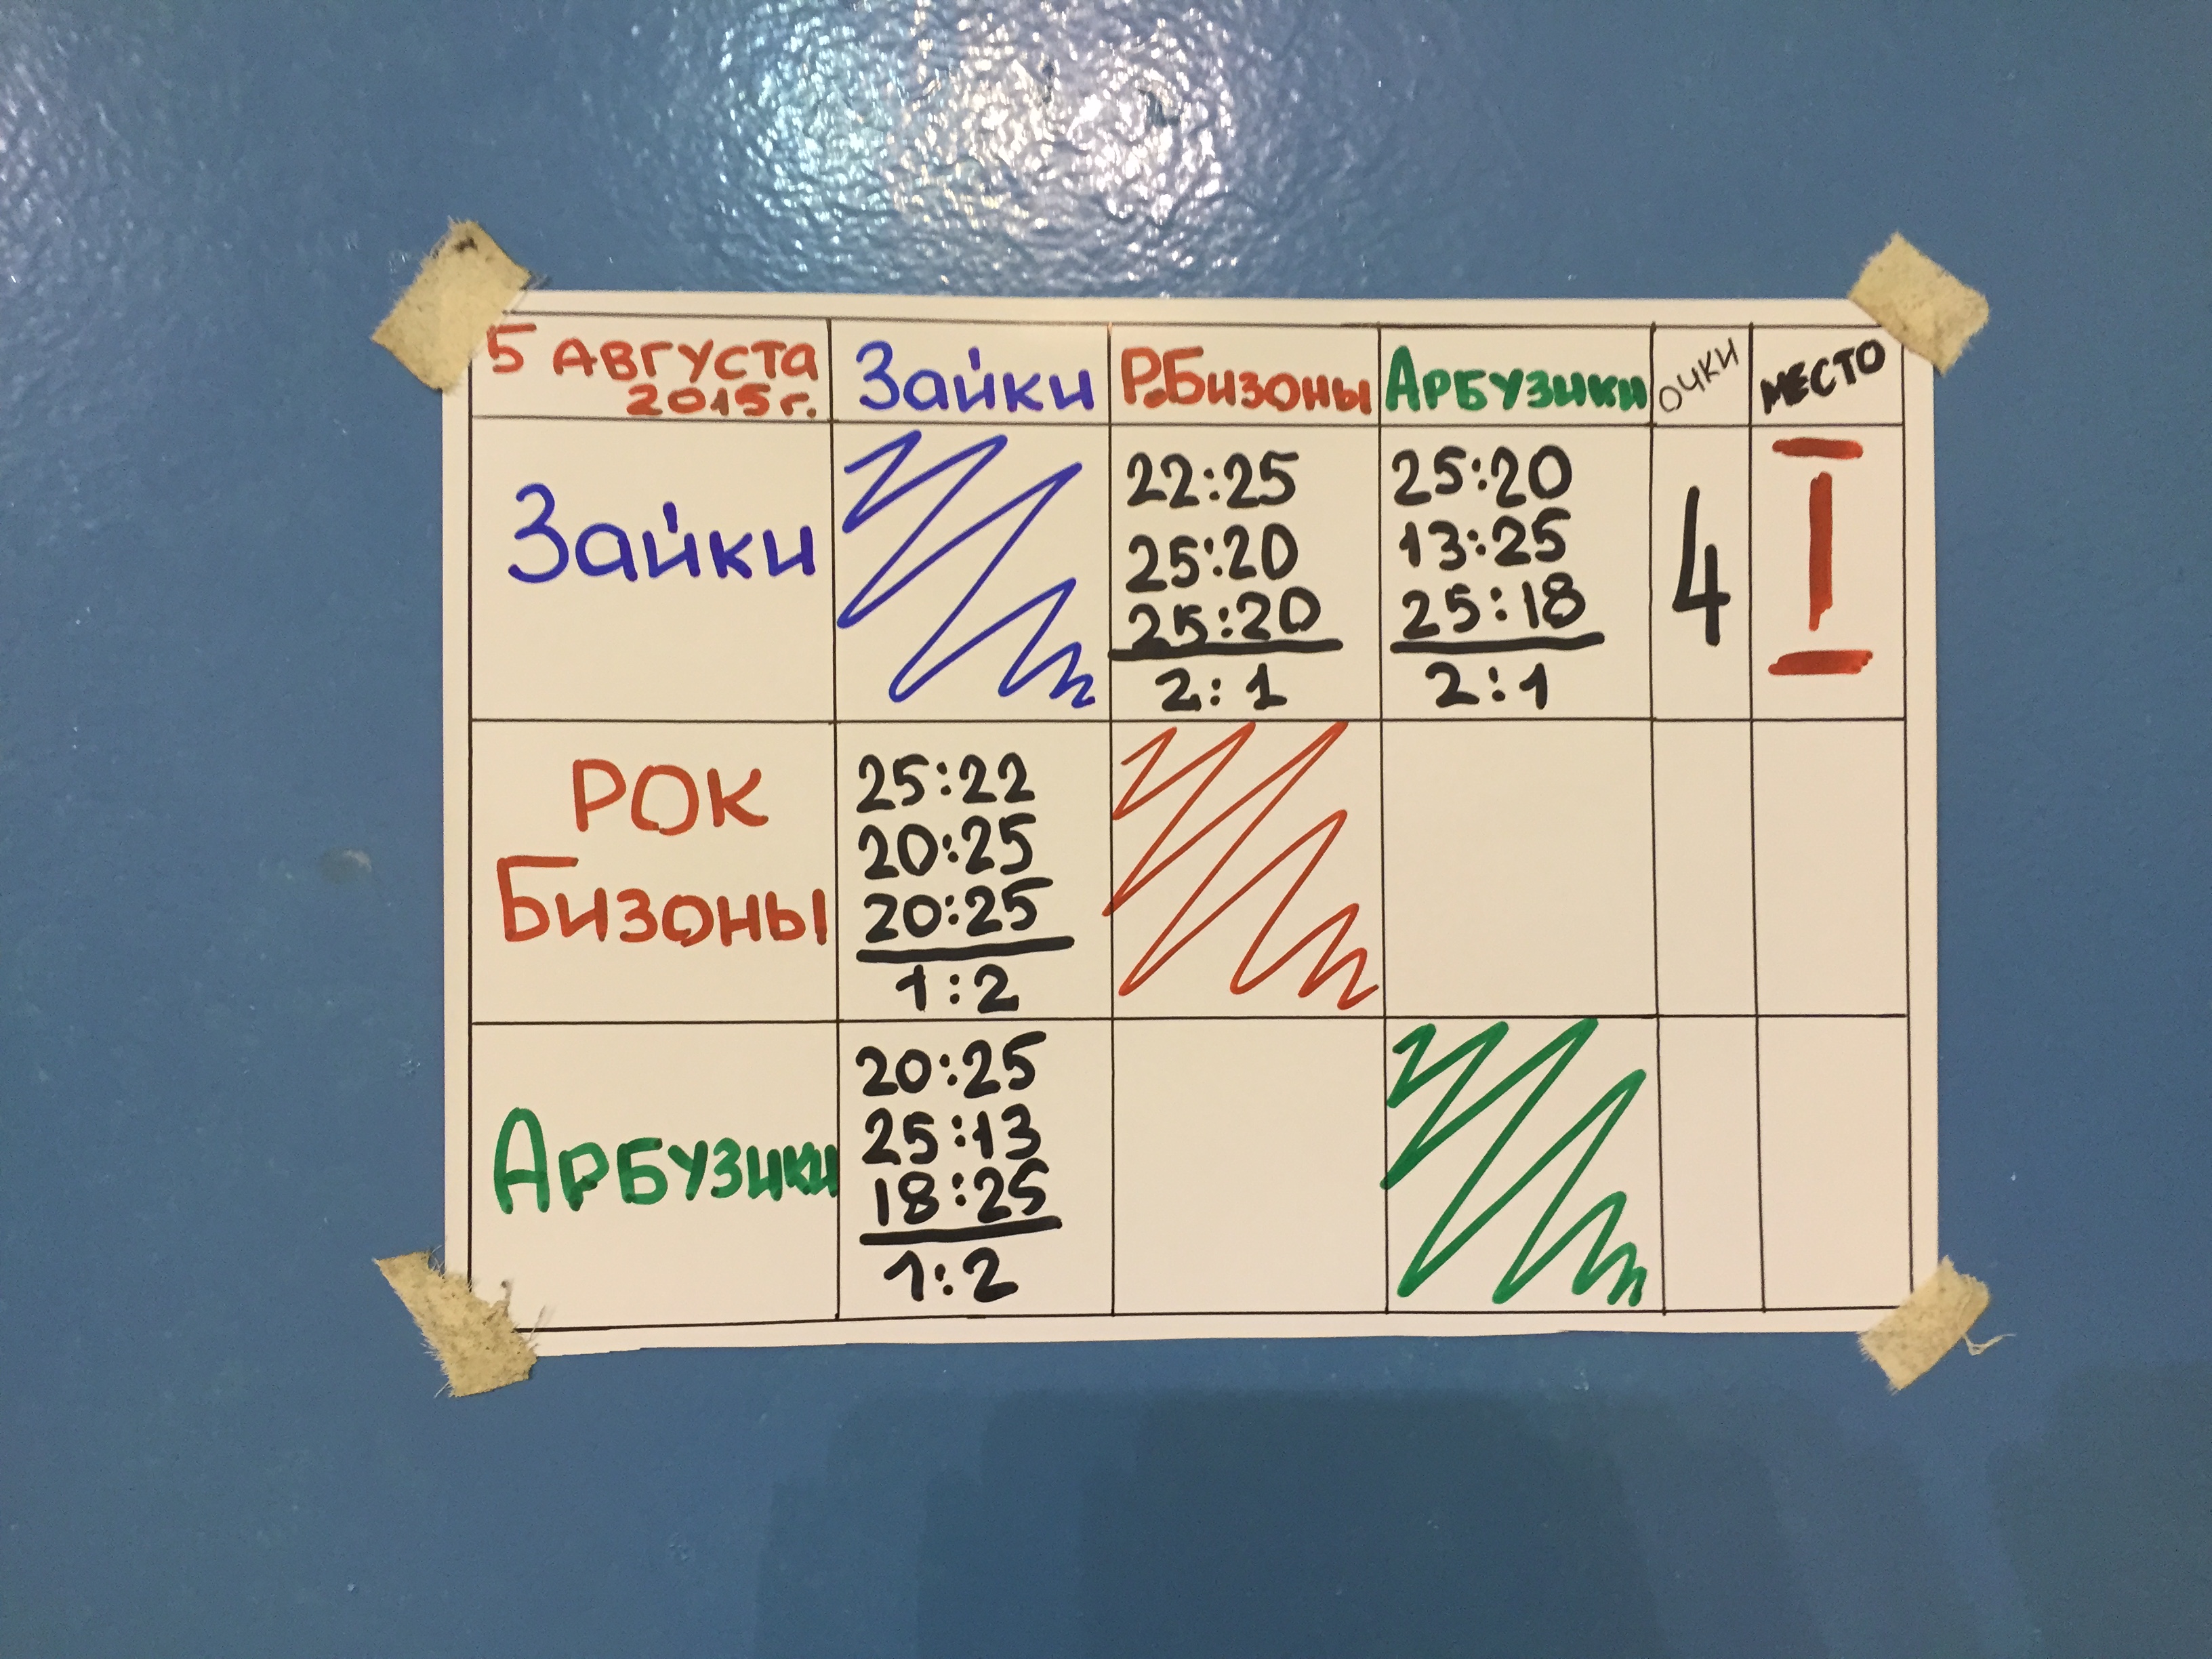 5 АВГУСТА
2015г.
Зайки
Р.Бизоны
Арбузики
ОЧКИ
МЕСТО
Зайки
22:25
25:20
25:20
2:1
25:20
13:25
25:18
2:1
4
I
РОК
Бизоны
25:22
20:25
20:25
1:2
Арбузики
20:25
25:13
18:25
1:2